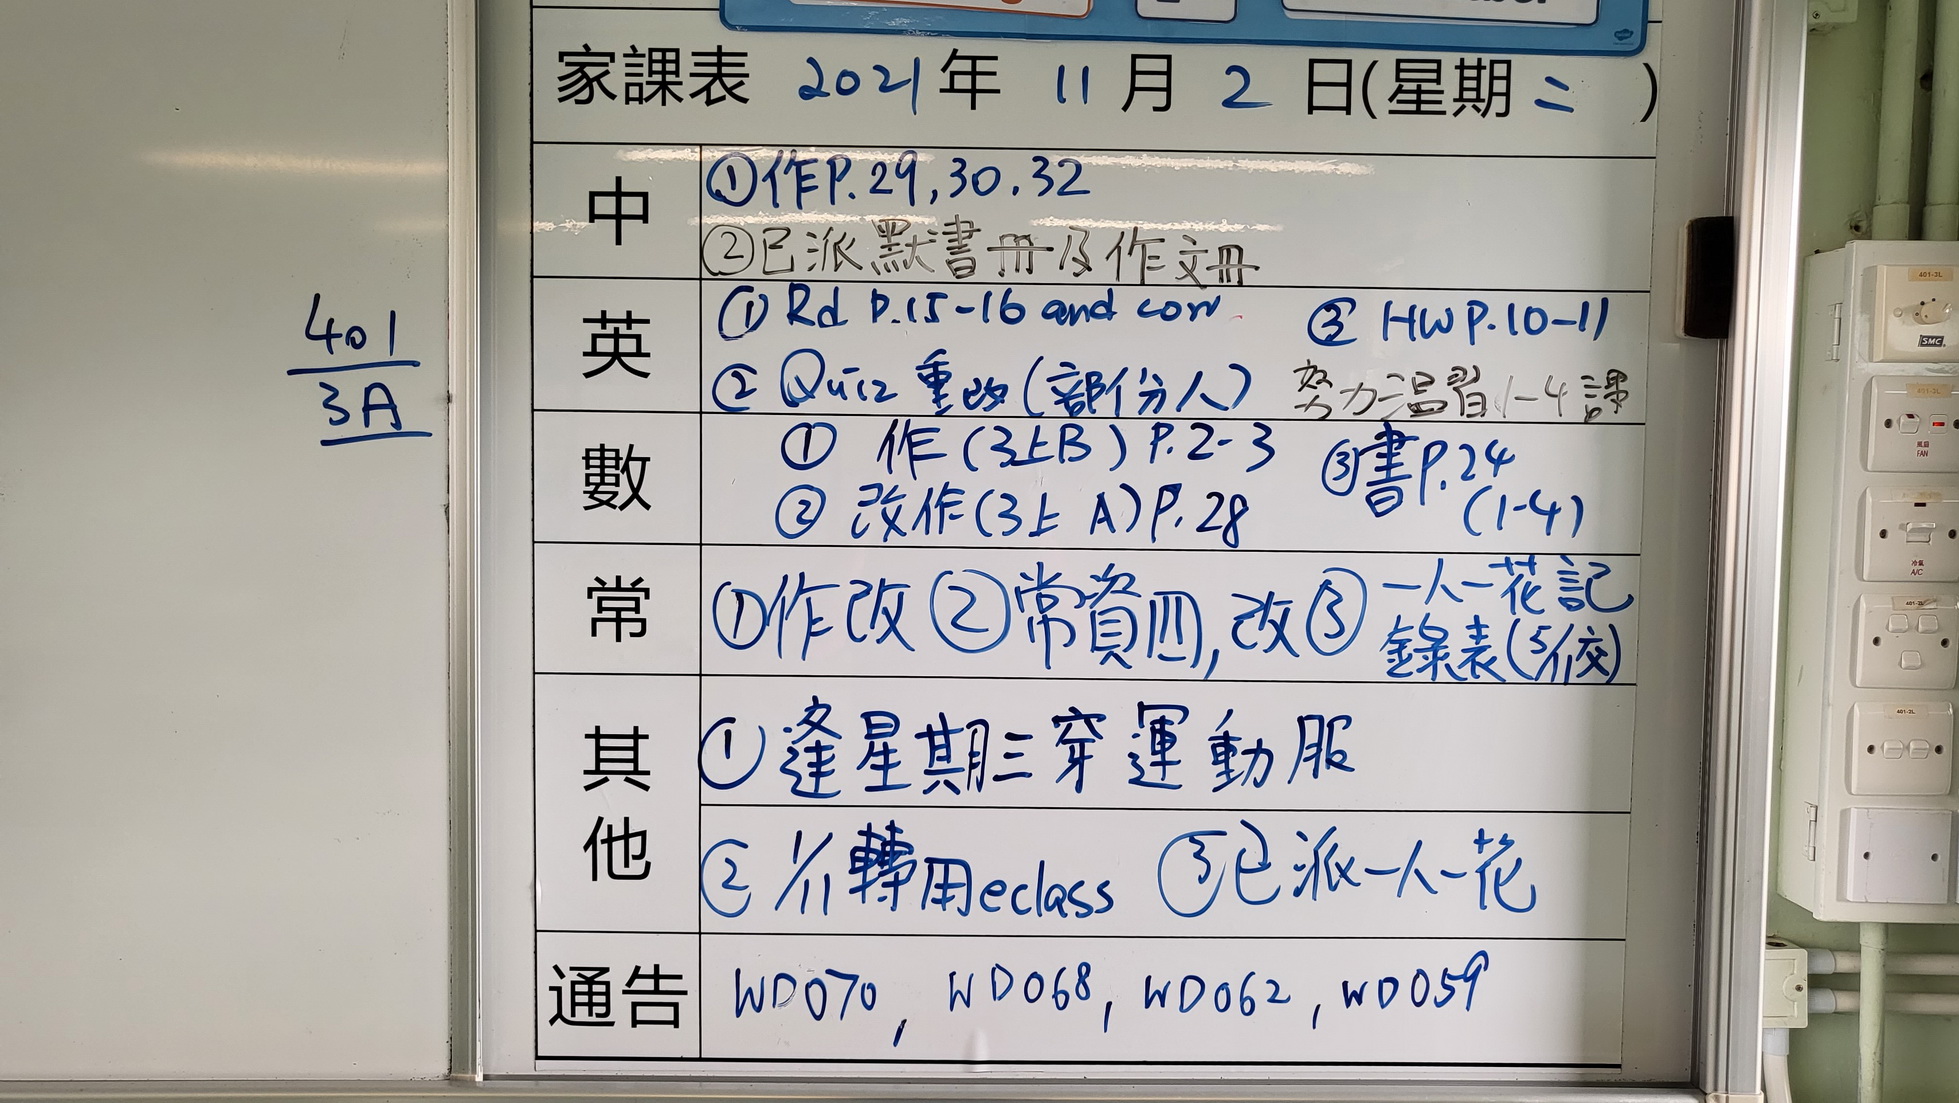 家課表 2021年 11月 2日(星期二)
401
3A
中
①作P.29,30.32
②已派默書冊及作文冊
英
① Rd P.15-16 and corr
③ HW P.10-11
② Quiz 重改(部份人)
努力溫習1-4課
數
① 作(3上B) P.2-3
② 改作(3上A) P.28
③書P.24
(1-4)
常
①作改 ②常資四,改 ③一人一花記
錄表(5/11交)
其他
①逢星期三穿運動服
② 1/11轉用eclass ③已派一人一花
通告
WD070, WD068, WD062, WD059
401-3L
SMC
401-3L
風扇
FAN
冷氣
A/C
401-2L
401-2L